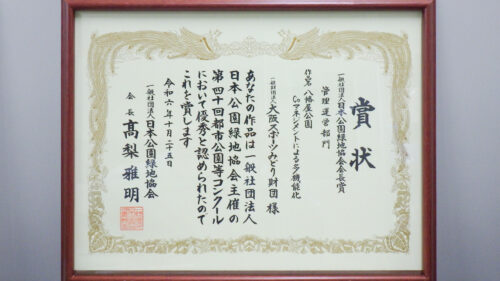 賞状
一般社団法人日本公園緑地協会会長賞
管理運営部門
作品名 八幡屋公園
Coマネジメントによる多機能化
一般財団法人大阪スポーツみどり財団 様
あなたの作品は一般社団法人
日本公園緑地協会主催の
第四十回都市公園等コンクール
において優秀と認められたので
これを賞します
令和六年十月二十五日
一般社団法人日本公園緑地協会
会長 髙梨雅明